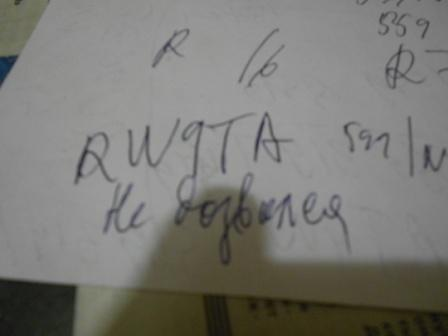 559
R /6 R
RW9TA 599/
Не дозвался